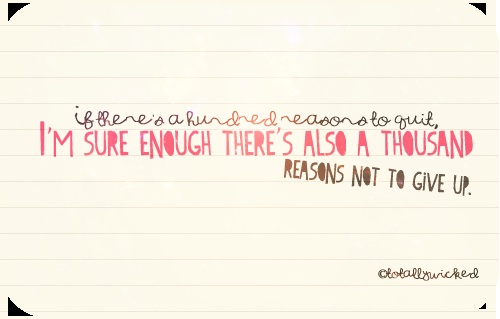 if there's a hundred reasons to quit,
I'M SURE ENOUGH THERE'S ALSO A THOUSAND
REASONS NOT TO GIVE UP.
©totallywicked